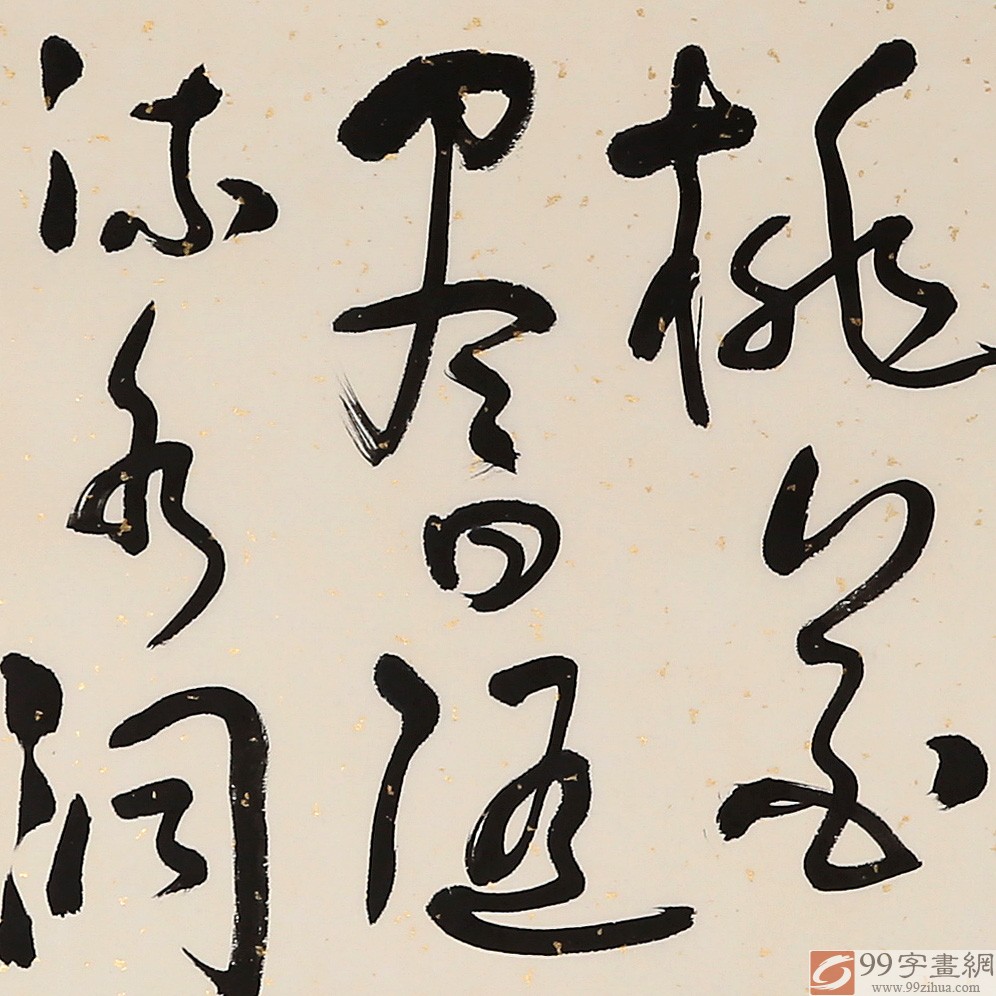 桃花
尽日随
流水洞
99字畫網
www.99zihua.com